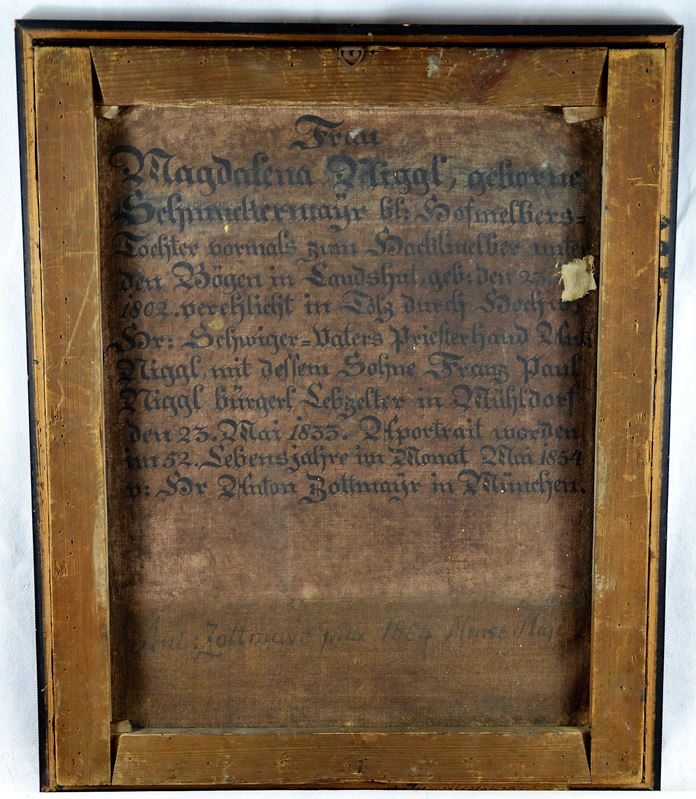 Frau
Magdalena Niggl, geborne
Schmuckermayr bl: Hofmelbers=
Tochter vormals zum Hacklmelber unter
den Bögen in Landshut, geb: den 23.
1802. verehlicht in Tölz durch Hochw:
Hr: Schwiger=Vaters Priesterhand
Niggl, mit dessem Sohne Franz Paul
Niggl bürgerl Lebzelter in Mühldorf
den 23. Mai 1833. Aportrait worden
im 52. Lebensjahre im Monat Mai 1854
v: Hr Anton Zottmayr in München.
Ant: Zottmayr pinx 1854 Mense Maje